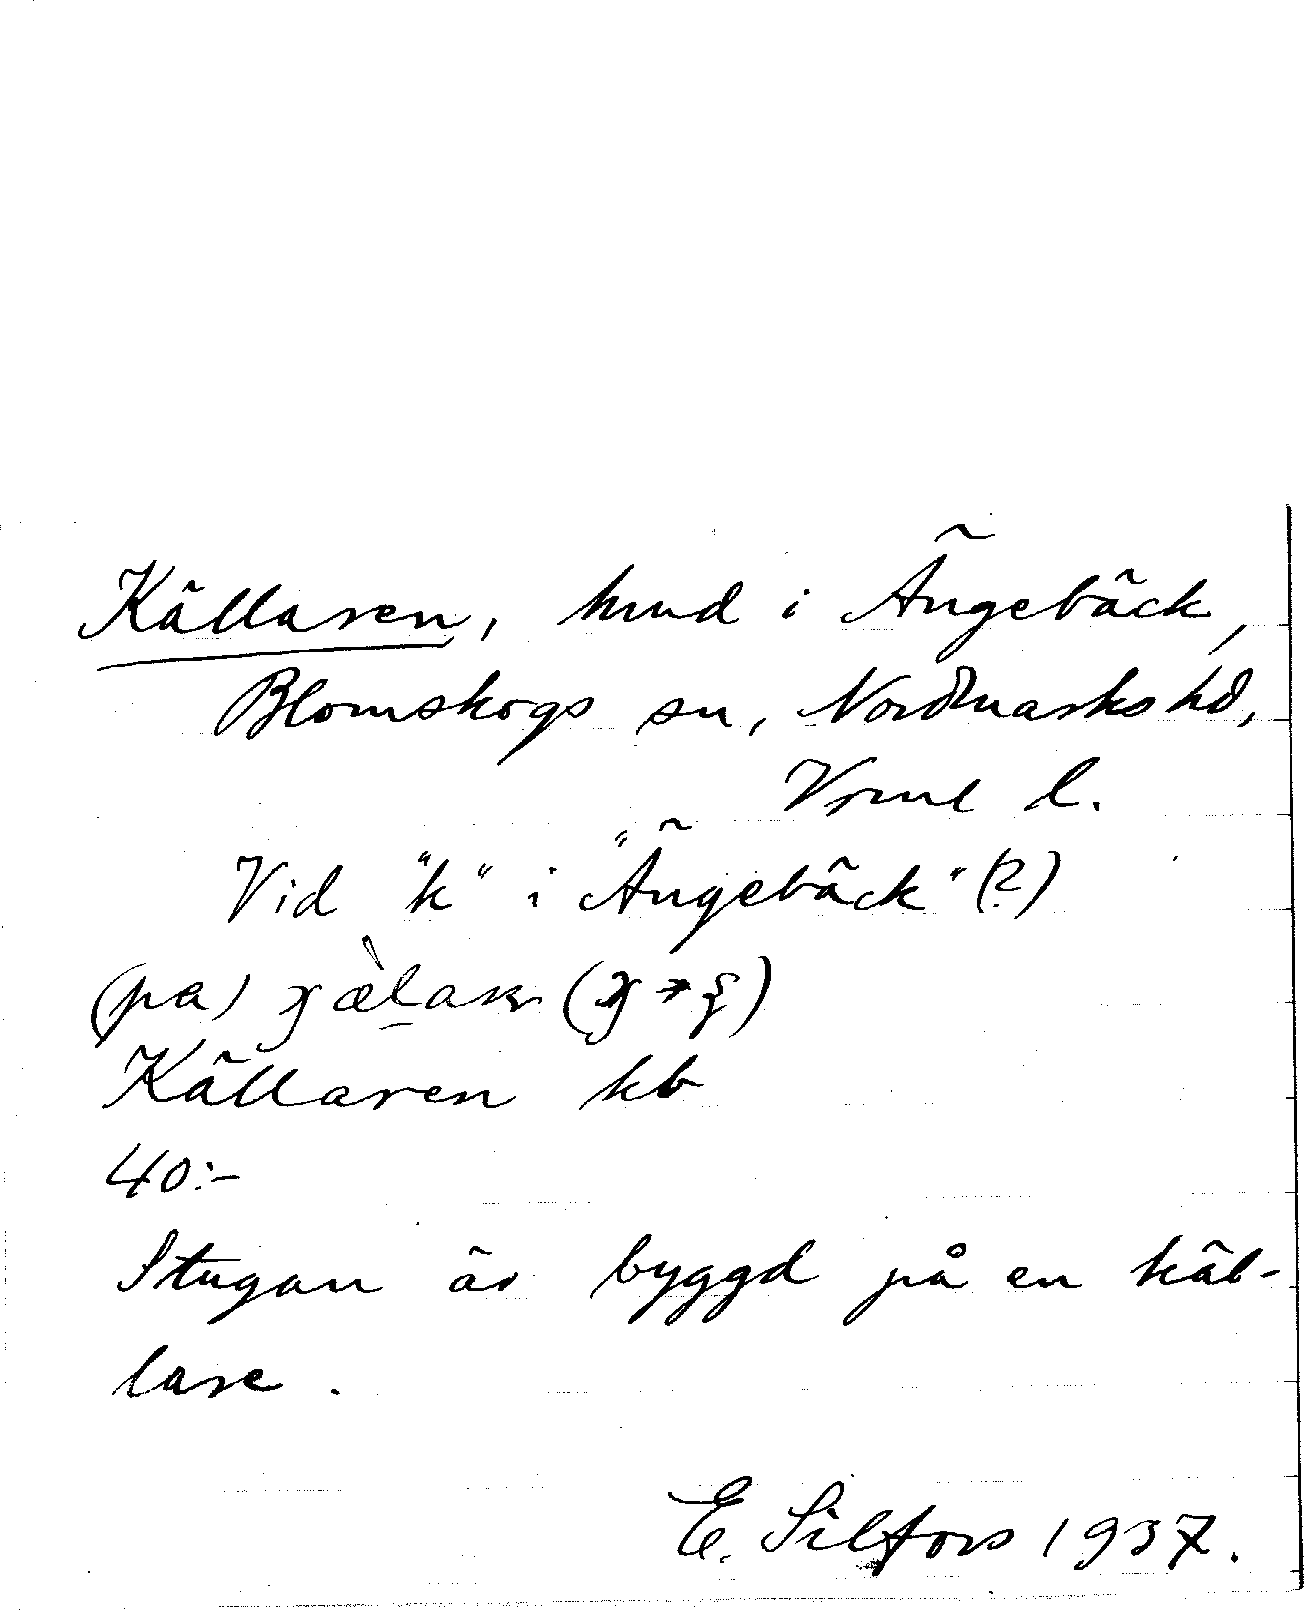 Källaren, hmd i Ängebäck,
Blomskogs sn, Nordmarks hd,
Vrml l.
Vid "k" i "Ängebäck" (?)
(pa)
Källaren kb
40:-
Stugan är byggd på en käl-
lare.
E. Silfors 1937.